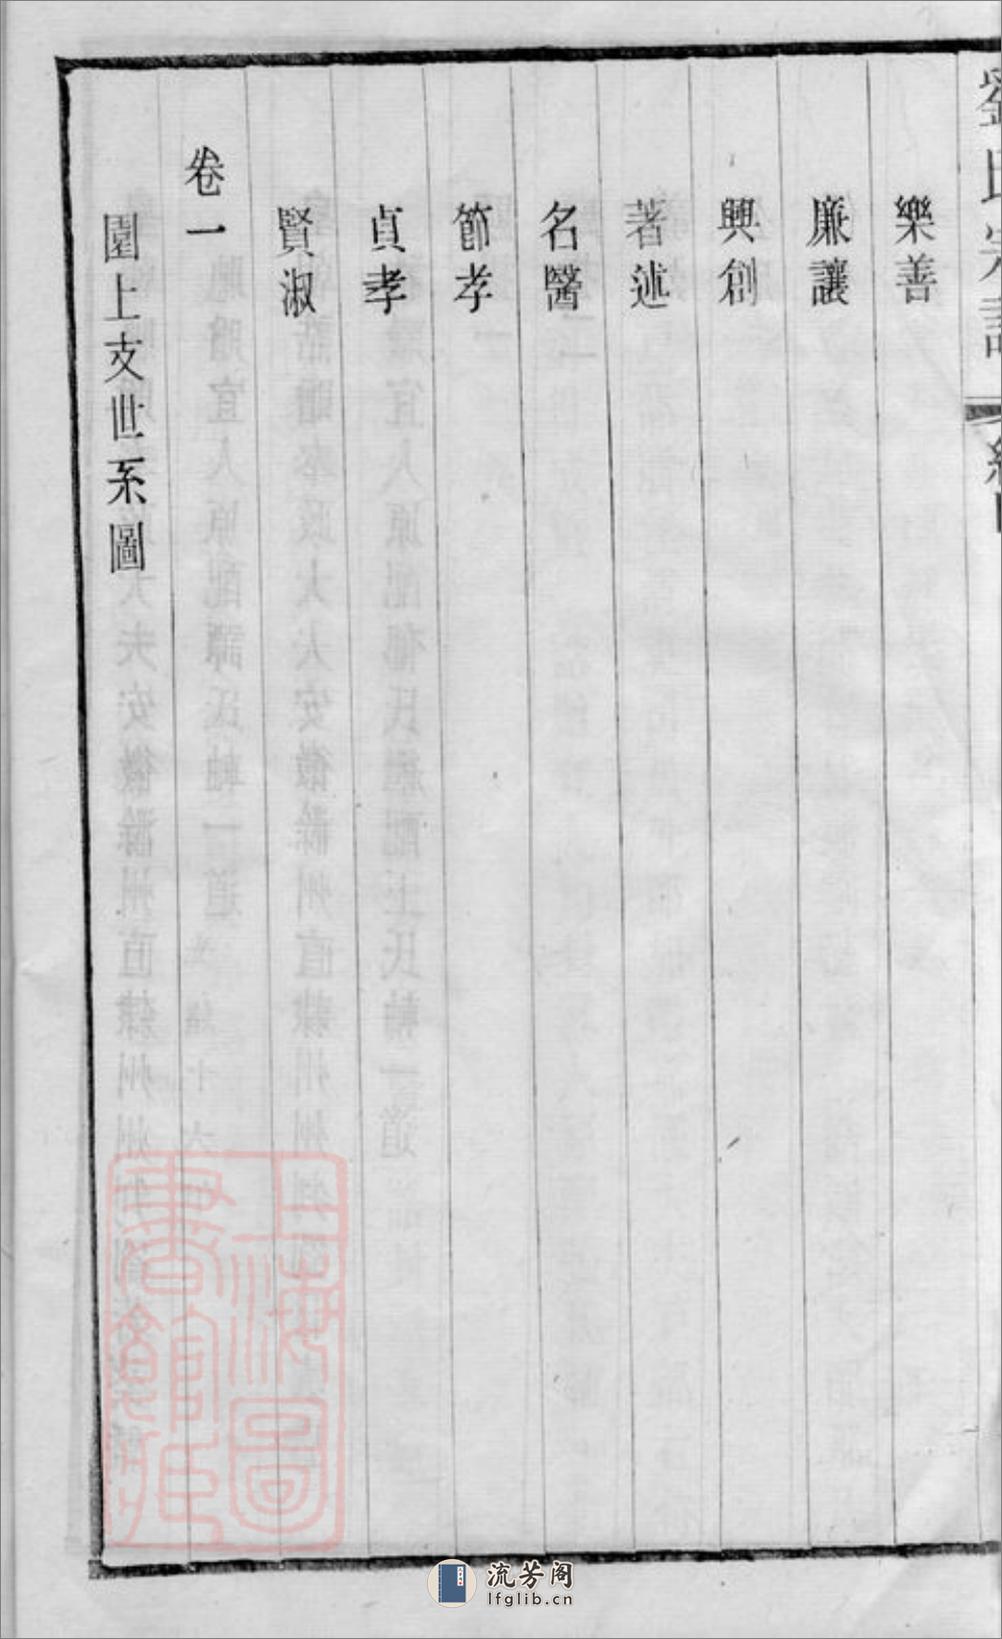 劉氏宗譜
樂善
廉讓
興創
著述
名醫
節孝
貞孝
賢淑
卷一
園上支世系圖
上海圖書館藏
流芳阁
lfglib.cn